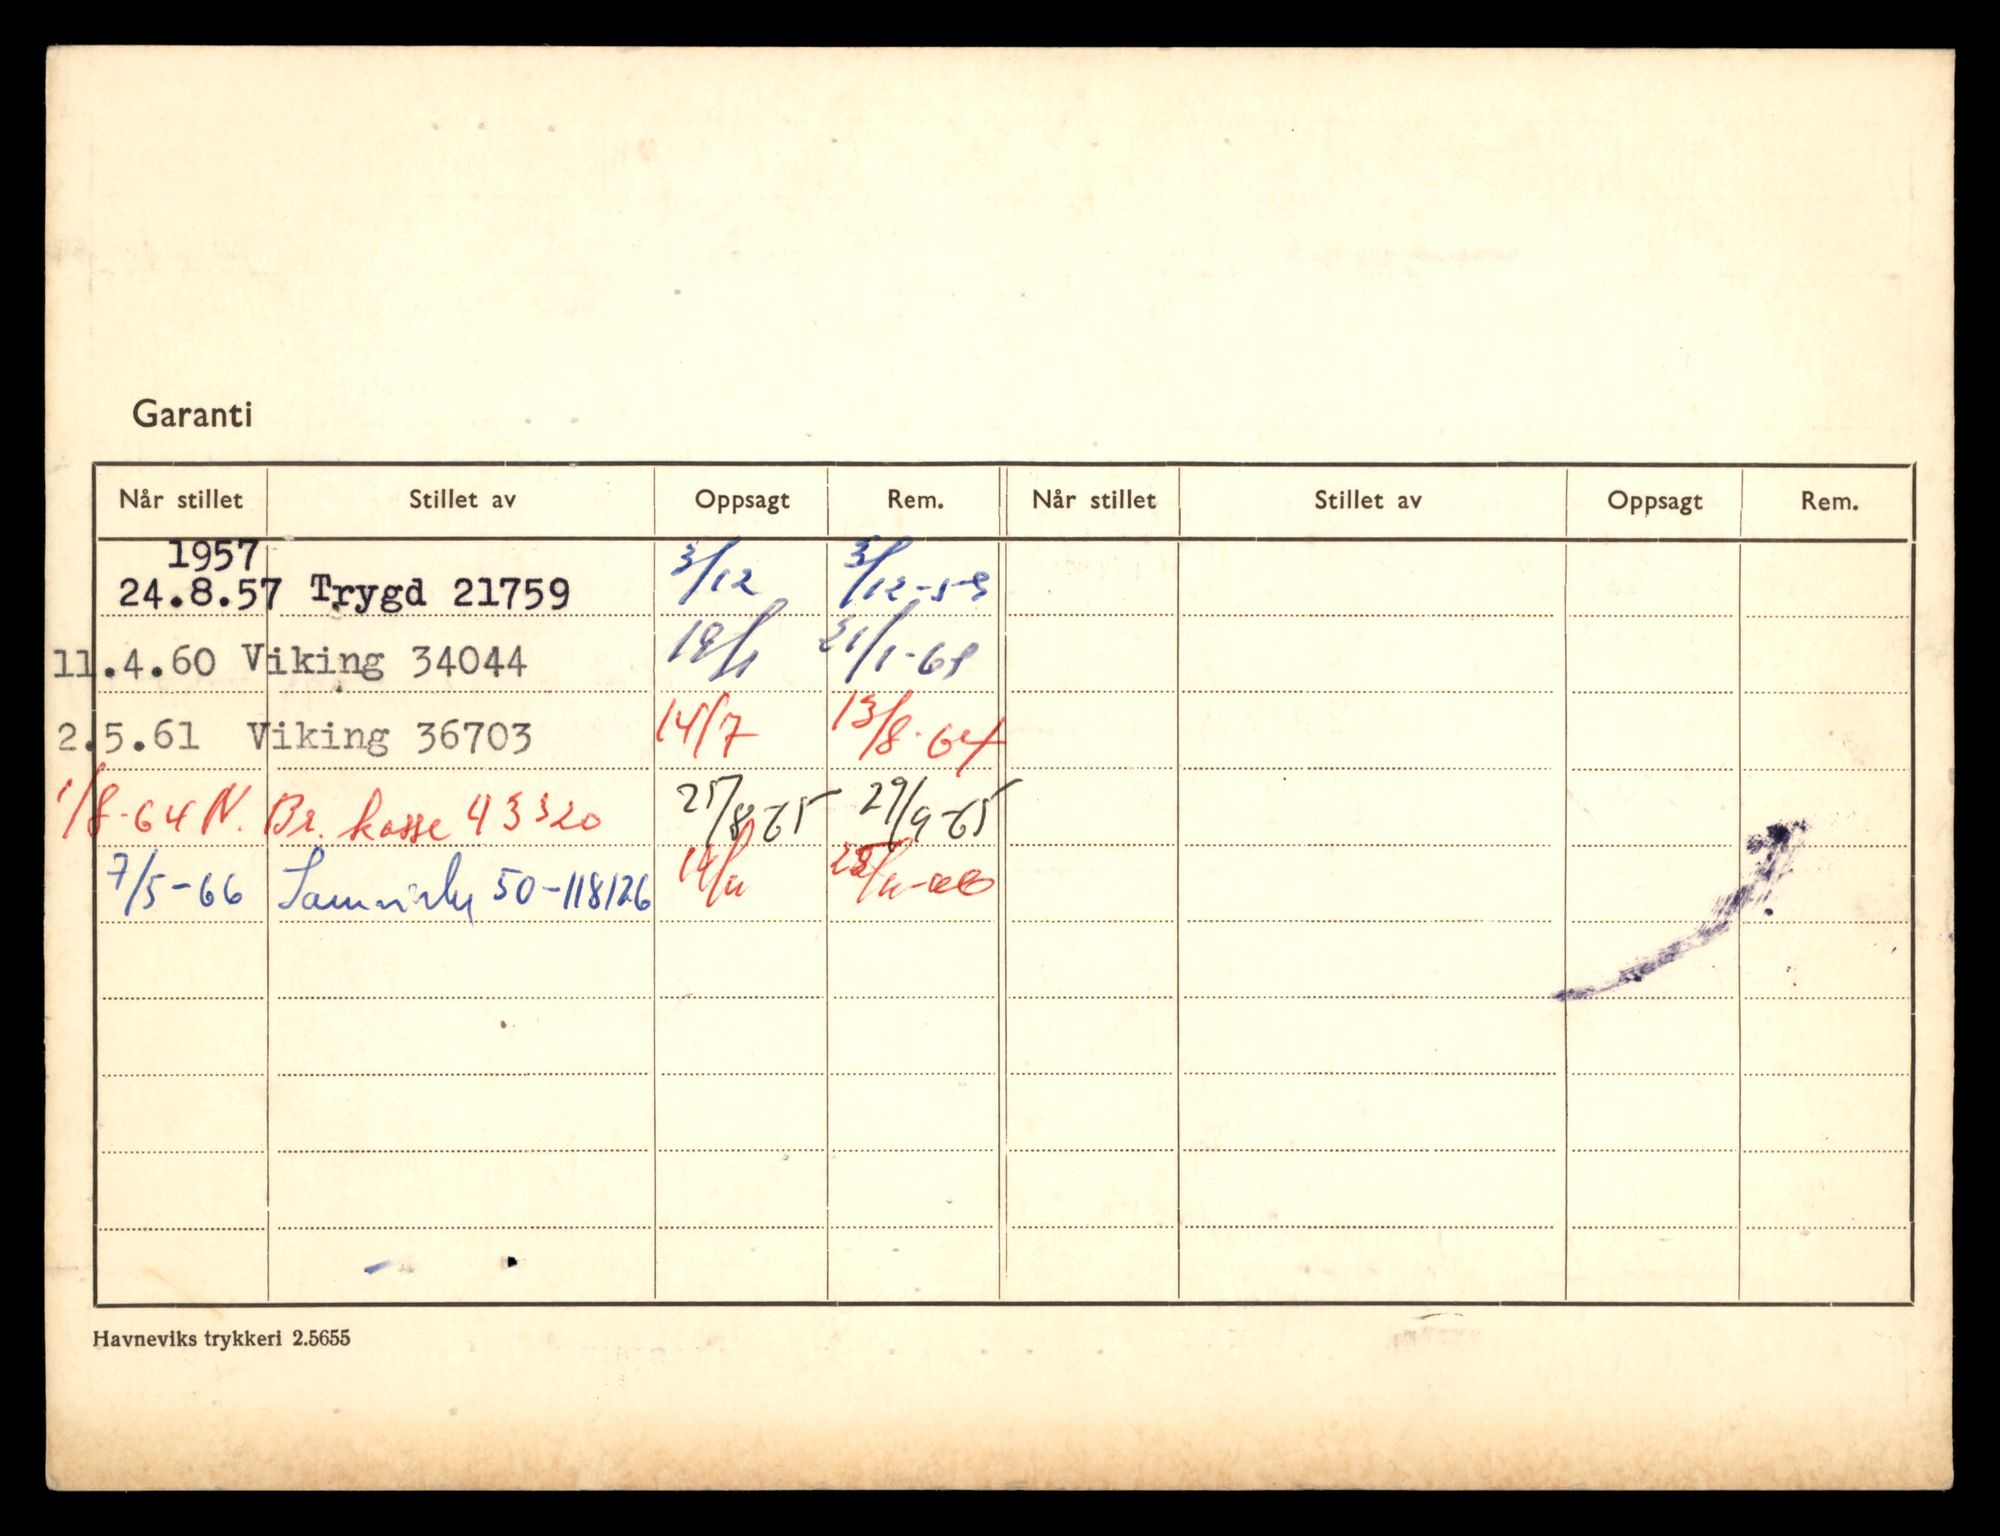 Garanti
Når stillet Stillet av Oppsagt Rem. Når stillet Stillet av Oppsagt Rem.
1957
24.8.57 Trygd 21759 3/12 3/12-59
11.4.60 Viking 34044 18/1
2.5.61 Viking 36703 14/7 13/8-64
1/8-64 N. Br. kasse 43320 25/8-65 29/9-65
7/5-66 Samvirke 50-118126
Havneviks trykkeri 2.5655